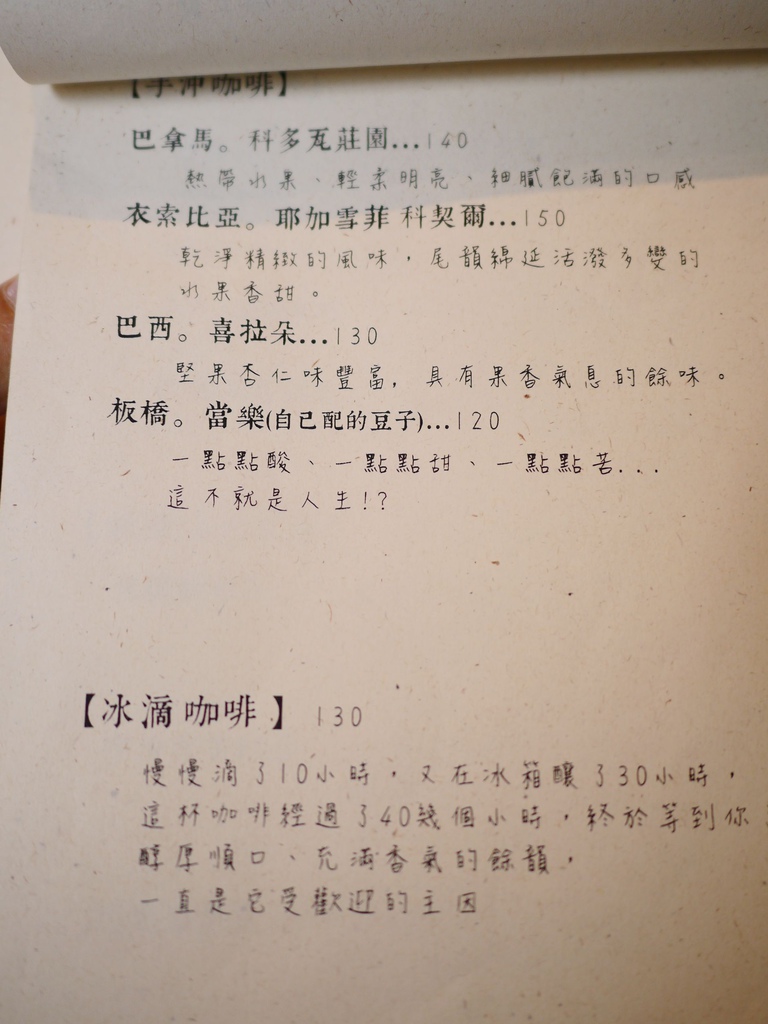 【手沖咖啡】
巴拿馬。科多瓦莊園...140
熱帶水果、輕柔明亮、細膩飽滿的口感
衣索比亞。耶加雪菲 科契爾...150
乾淨精緻的風味，尾韻綿延活潑多變的
水果香甜。
巴西。喜拉朵...130
堅果杏仁味豐富，具有果香氣息的餘味。
板橋。當樂(自己配的豆子)...120
一點點酸、一點點甜、一點點苦...
這不就是人生!?
【冰滴咖啡】 130
慢慢滴了10小時，又在冰箱釀了30小時，
這杯咖啡經過了40幾個小時，終於等到你
醇厚順口、充滿香氣的餘韻，
一直是它受歡迎的主因